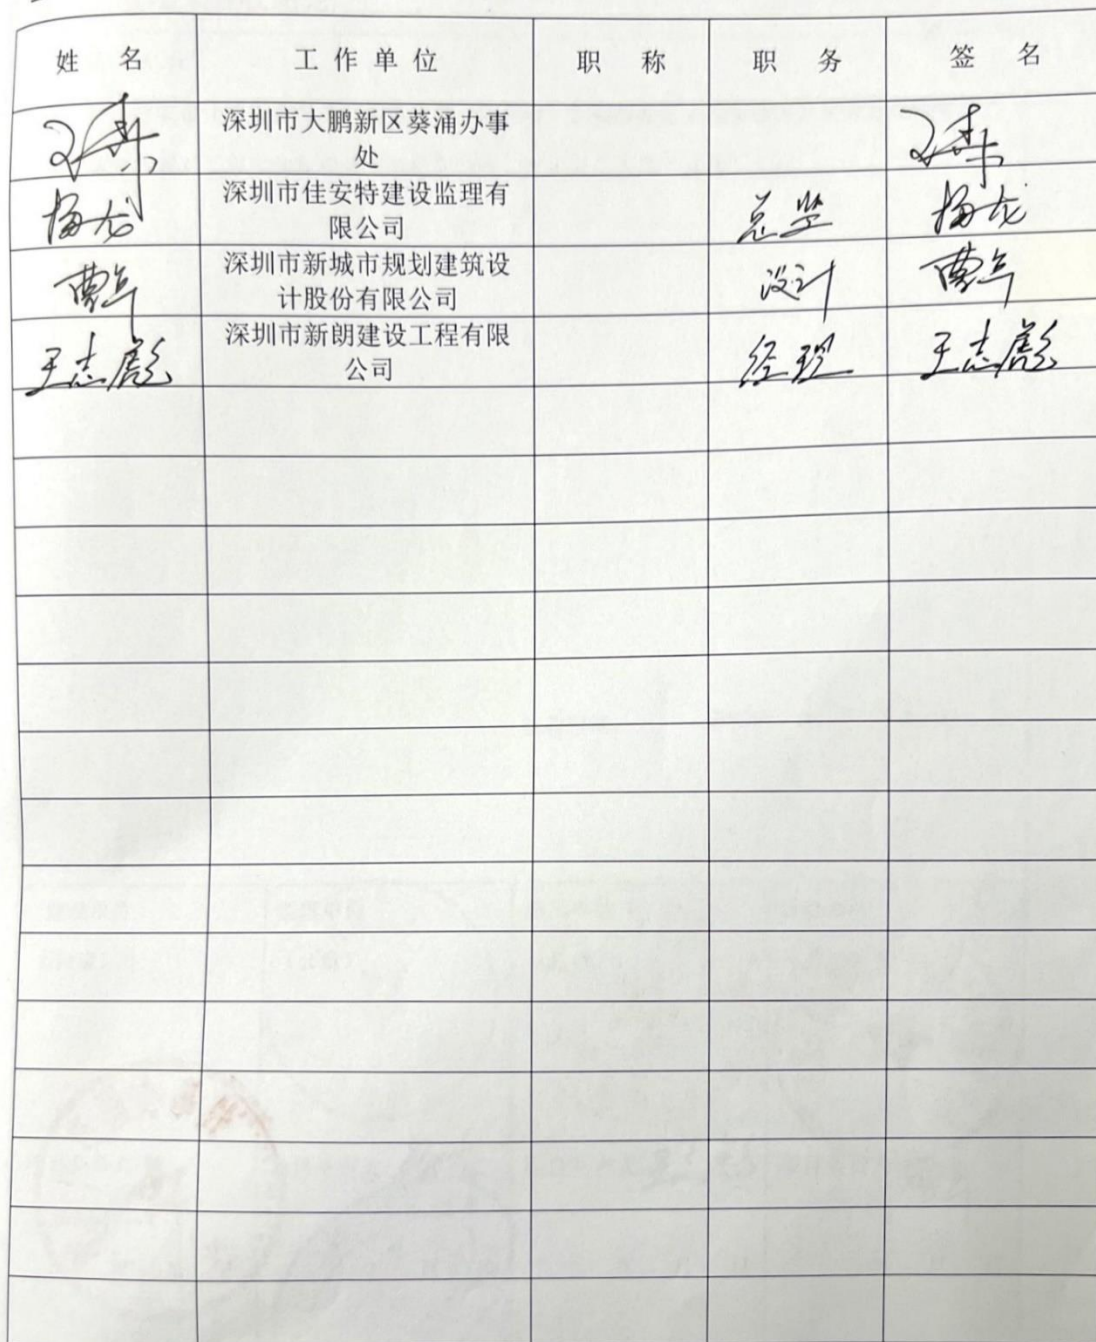 姓 名 工作单位 职 称 职 务 签 名
深圳市大鹏新区葵涌办事
处
深圳市佳安特建设监理有
限公司
梅龙 总监 梅龙
深圳市新城市规划建筑设
计股份有限公司
设计
深圳市新朗建设工程有限
公司
王志彪 经理 王志彪